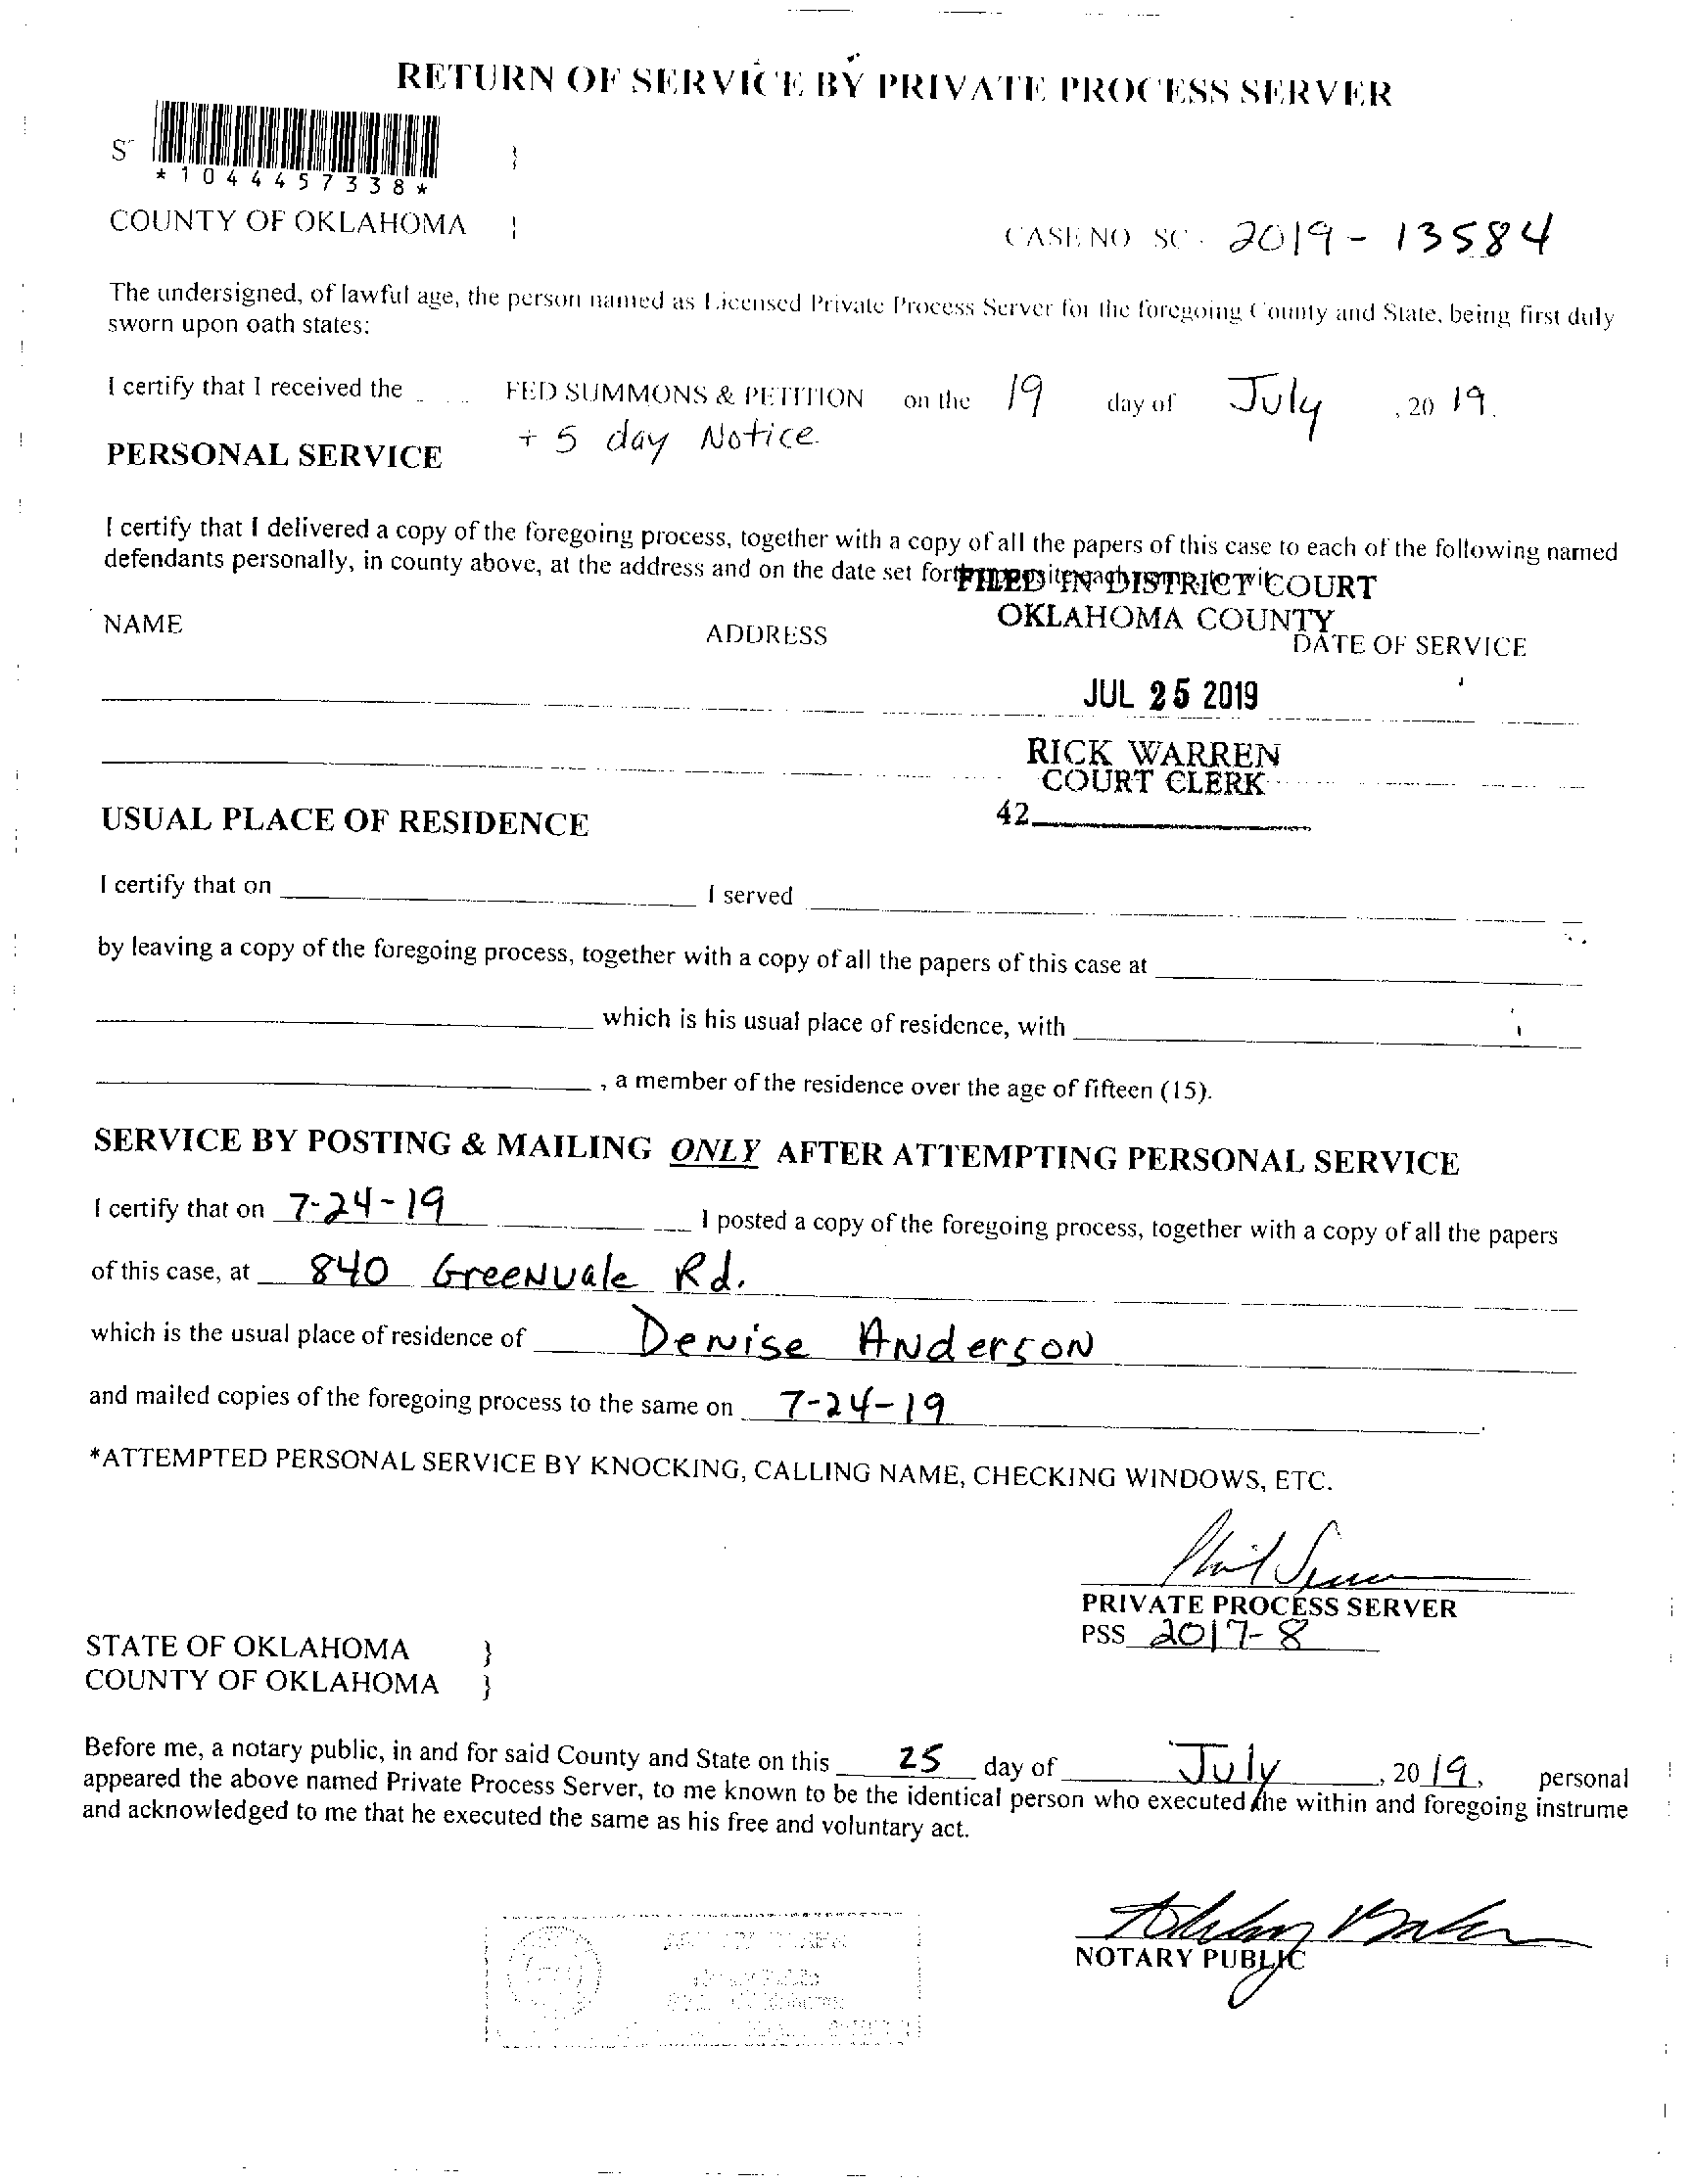 RETURN OF SERVICE BY PRIVATE PROCESS SERVER
S
*1044457338*
COUNTY OF OKLAHOMA }
CASE NO SC- 2019-13584
The undersigned, of lawful age, the person named as Licensed Private Process Server for the foregoing County and State, being first duly
sworn upon oath states:
I certify that I received the FED SUMMONS & PETITION on the 19 day of July, 20 19.
+ 5 day Notice
PERSONAL SERVICE
I certify that I delivered a copy of the foregoing process, together with a copy of all the papers of this case to each of the following named
defendants personally, in county above, at the address and on the date set forth
FILED IN DISTRICT COURT
OKLAHOMA COUNTY
NAME ADDRESS DATE OF SERVICE
JUL 25 2019
RICK WARREN
COURT CLERK
42
USUAL PLACE OF RESIDENCE
I certify that on I served
by leaving a copy of the foregoing process, together with a copy of all the papers of this case at
which is his usual place of residence, with
, a member of the residence over the age of fifteen (15).
SERVICE BY POSTING & MAILING ONLY AFTER ATTEMPTING PERSONAL SERVICE
I certify that on 7-24-19 I posted a copy of the foregoing process, together with a copy of all the papers
of this case, at 840 Greenvale Rd.
which is the usual place of residence of Denise Anderson
and mailed copies of the foregoing process to the same on 7-24-19.
*ATTEMPTED PERSONAL SERVICE BY KNOCKING, CALLING NAME, CHECKING WINDOWS, ETC.
PRIVATE PROCESS SERVER
PSS 2017-8
STATE OF OKLAHOMA }
COUNTY OF OKLAHOMA }
Before me, a notary public, in and for said County and State on this 25 day of July, 20 19, personal
appeared the above named Private Process Server, to me known to be the identical person who executed the within and foregoing instrume
and acknowledged to me that he executed the same as his free and voluntary act.
NOTARY PUBLIC